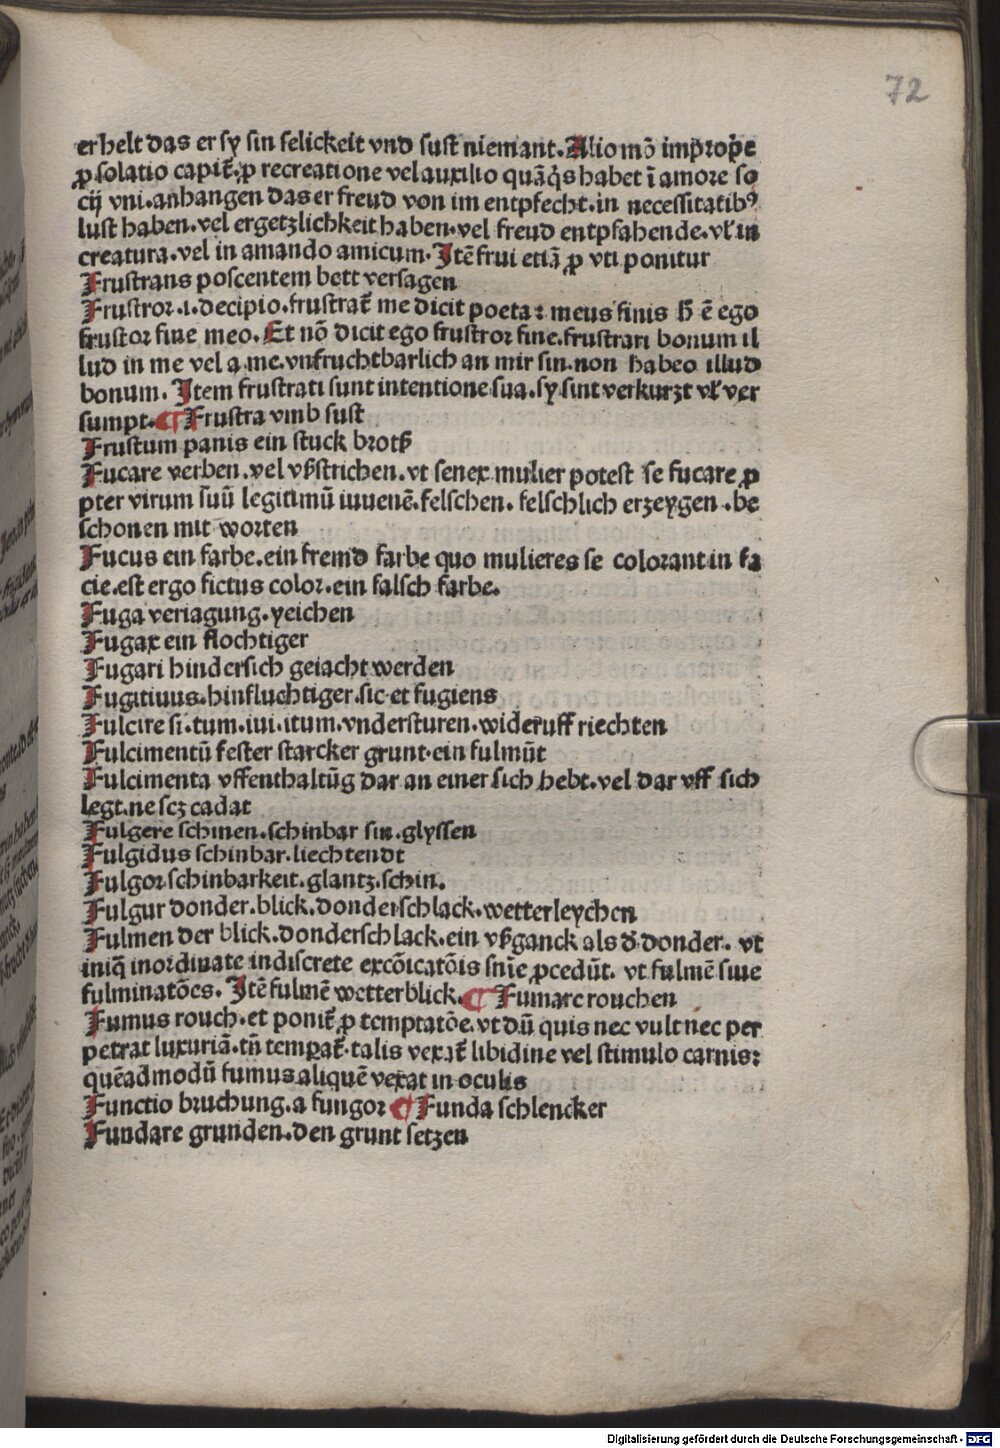 72
er helt das er sy sin selickeit vnd sust niemant. Alio mō imprope
ꝓ solatio capit᷑. ꝓ recreatione vel auxilio quāq̄s habet ī amore so
cij vni. anhangen das er freud von im entpfecht. in necessitatibꝰ
lust haben. vel ergetzlichkeit haben. vel freud entpfahende. vl' in
creatura. vel in amando amicum. Itē frui etiā ꝓ vti ponitur
Frustrans poscentem bett versagen
Frustror .i. decipio. frustrat᷑ me dicit poeta: meus finis h̄ ē ego
frustor fine meo. Et nō dicit ego frustror fine. frustrari bonum il
lud in me vel a me. vnfruchtbarlich an mir sin. non habeo illud
bonum. Item frustrati sunt intentione sua. sy sint verkurzt vl' ver
sumpt. ¶ Frustra vmb sust
Frustum panis ein stuck brotß
Fucare verben. vel vßstrichen. vt senex mulier potest se fucare ꝓ
pter virum suū legitimū iuuenē. felschen. felschlich erzeygen. be
schonen mit worten
Fucus ein farbe. ein fremd farbe quo mulieres se colorant in fa
cie. est ergo fictus color. ein falsch farbe.
Fuga veriagung. yeichen
Fugax ein flochtiger
Fugari hindersich geiacht werden
Fugitiuus. hinfluchtiger. sic et fugiens
Fulcire si. tum. iui. itum. vndersturen. wideruff riechten
Fulcimentū fester starcker grunt. ein fulmūt
Fulcimenta vffenthaltūg dar an einer sich hebt. vel dar vff sich
legt. ne scz cadat
Fulgere schinen. schinbar sin. glyssen
Fulgidus schinbar. liechtendt
Fulgor schinbarkeit. glantz. schin.
Fulgur donder. blick. donderschlack. wetterleychen
Fulmen der blick. donderschlack. ein vßganck als d' donder. vt
iniq̄ inordinate indiscrete excōicatōis sn̄ie ꝓcedūt. vt fulmē siue
fulminatōes. Itē fulmē wetterblick. ¶ Fumare rouchen
Fumus rouch. et ponit᷑ ꝓ temptatōe. vt dū quis nec vult nec per
petrat luxuriā. tn̄ temꝑat᷑. talis vexat᷑ libidine vel stimulo carnis:
quēadmodū fumus aliquē vexat in oculis
Functio bruchung. a fungor ¶ Funda schlencker
Fundare grunden. den grunt setzen
Digitalisierung gefördert durch die Deutsche Forschungsgemeinschaft - DFG